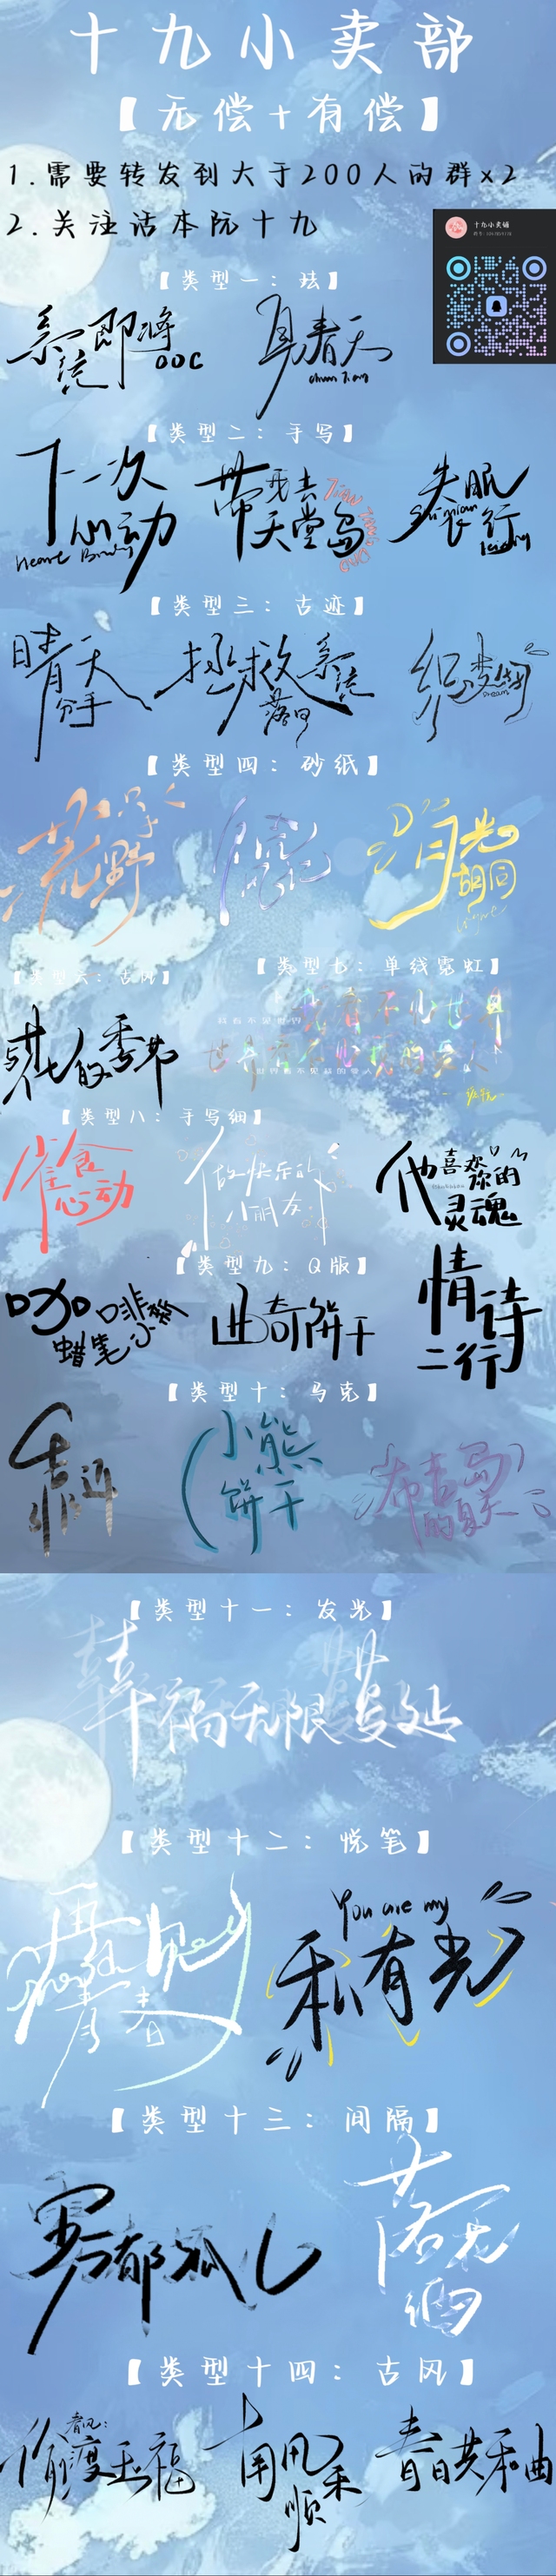 十九小卖部
【无偿+有偿】
1.需要转发到大于200人的群x2
2.关注沽本阮十九
十九小卖铺
【类型一：珐】
系统即将
ooc
见春天
chun Tian
【类型二：手写】
下一次
心动
带我去
天堂岛
失眠
夜行
【类型三：古迹】
晴天
分手
拯救系统
落日
织梦
Dream
【类型四：砂纸】
荒野
月光
胡同
【类型六：古风】
【类型七：单线霓虹】
与花的季节
我看不见世界
世界看不见我的爱人
【类型八：手写细】
雀食
心动
做快乐的
小朋友
他喜欢你的
灵魂
【类型九：Q版】
咖啡
蜡笔小新
曲奇饼干
情诗
二行
【类型十：马克】
小熊
饼干
布吉岛
的夏天
【类型十一：发光】
幸福无限蔓延
【类型十二：悦笔】
再见
青春
You are my
私有光
【类型十三：间隔】
雾都孤儿
落无
【类型十四：古风】
春风：
偷渡玉福
南风
顺禾
春日共和曲